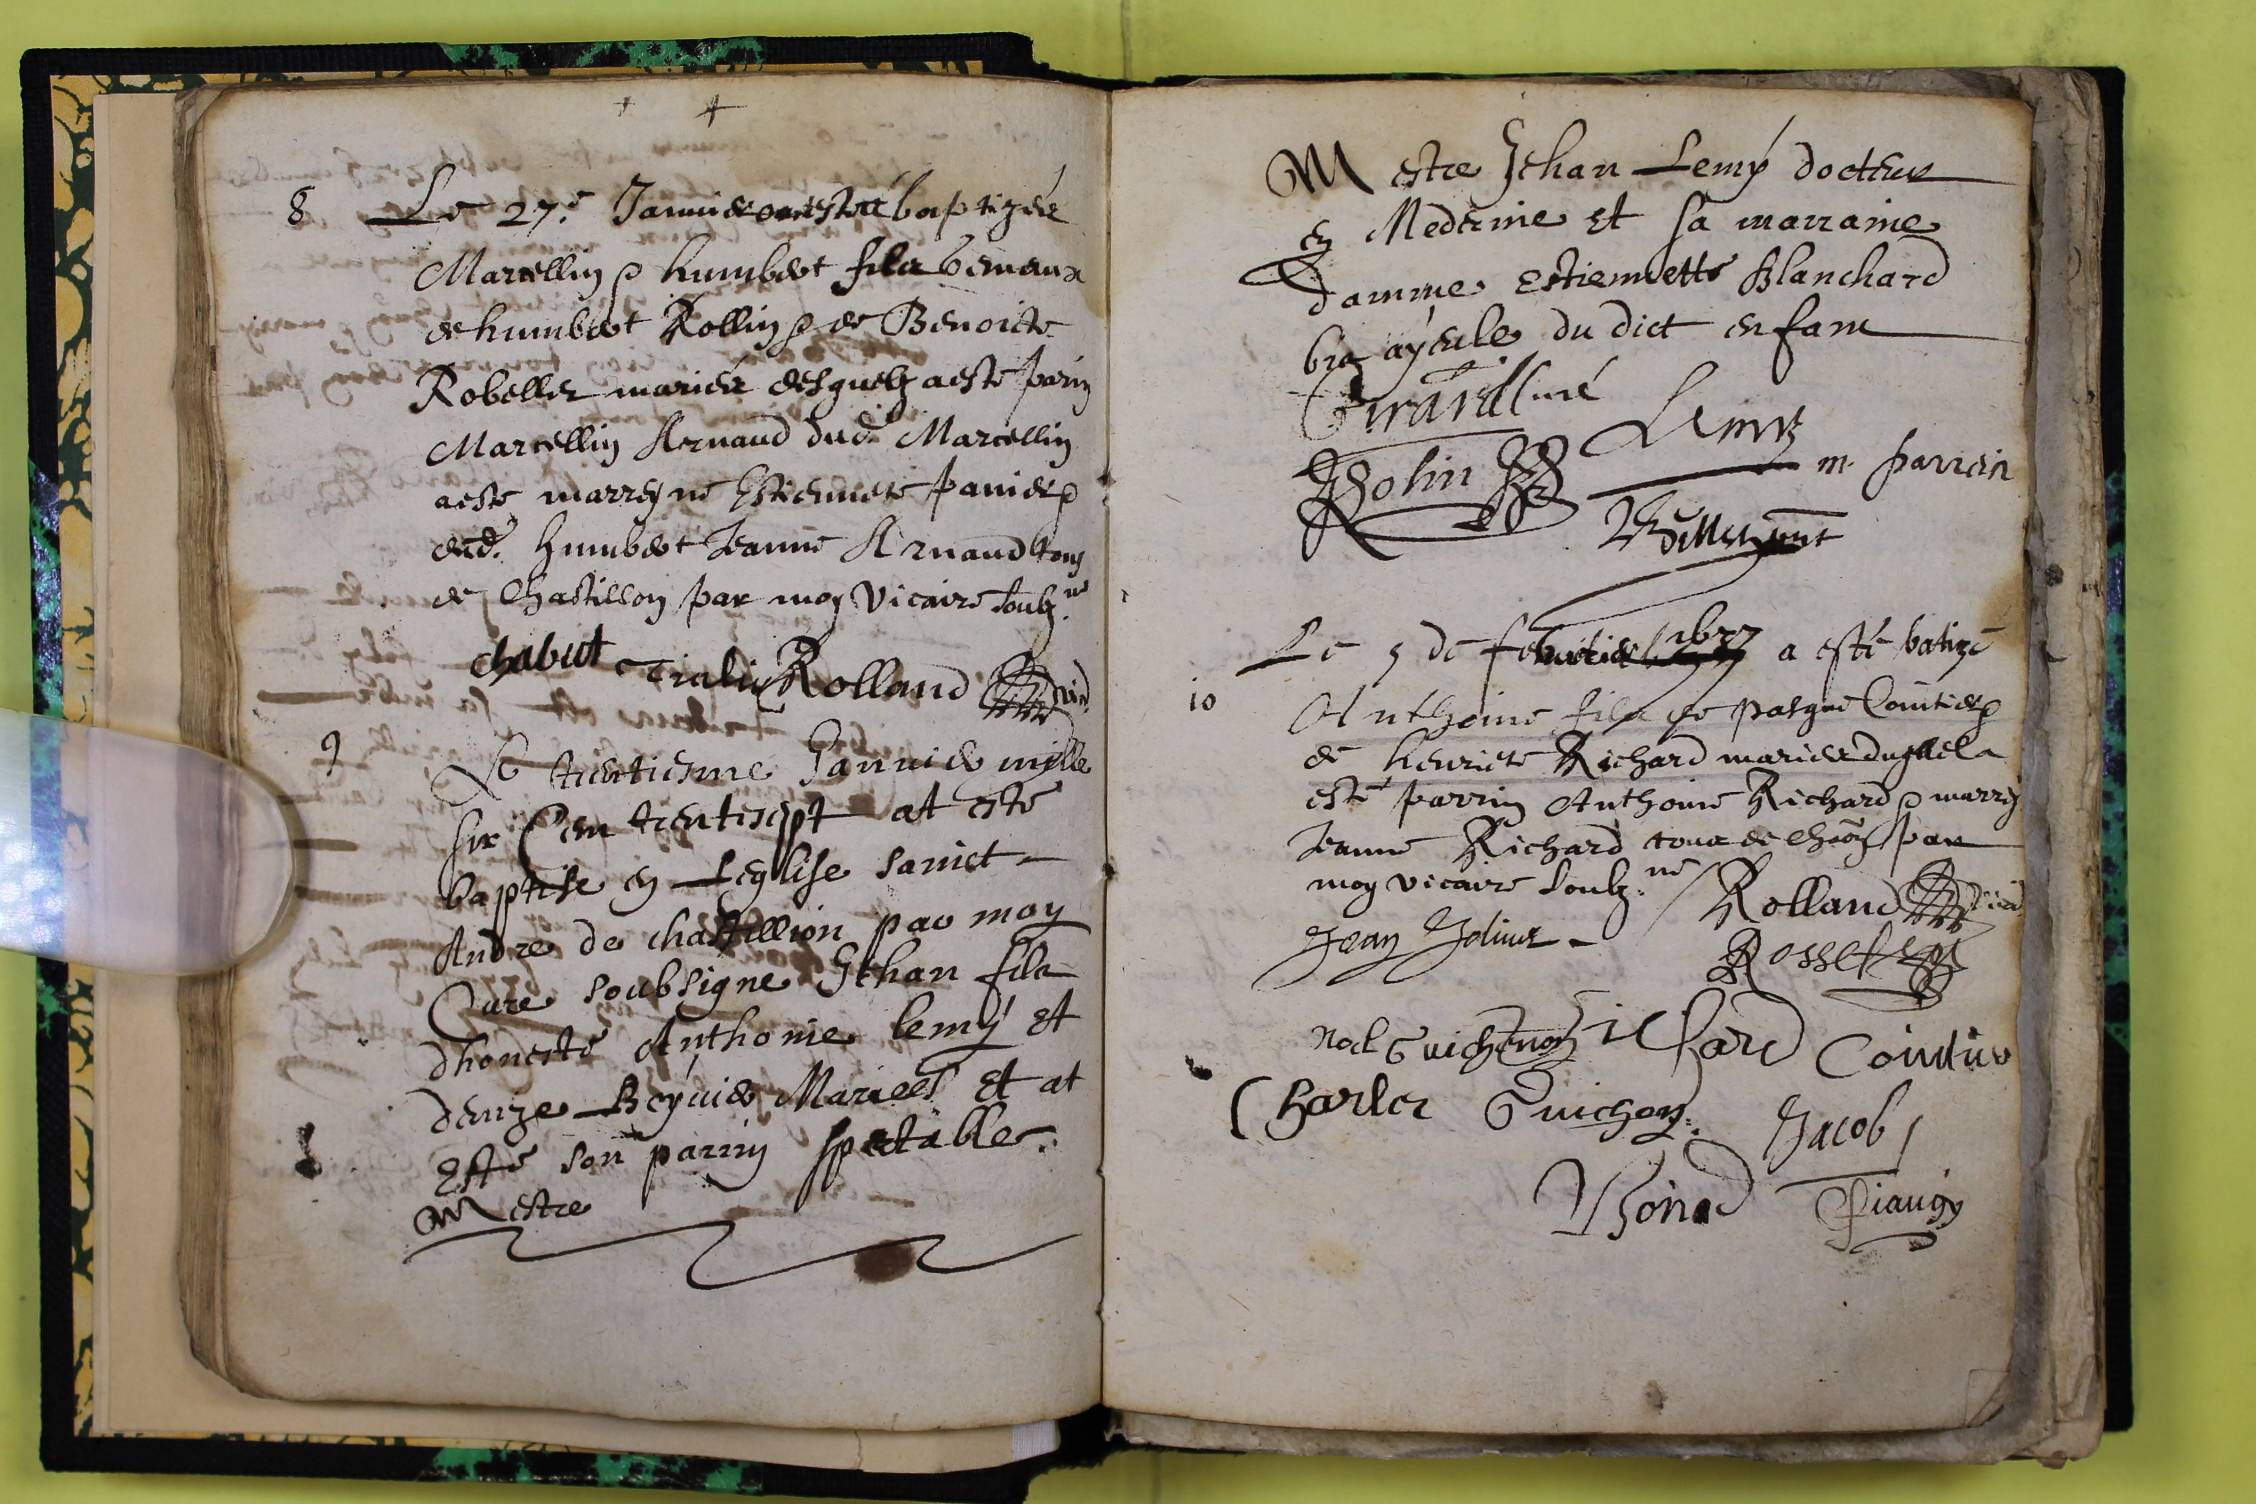 8 Le 27.e Janvier ont estée baptizés
Marcellin & humbert filz bemeaux
de humbert Rollin & de Benoicte
Robellez mariez desquelz a esté parin
Marcellin Arnaud dud. Marcellin
a este marreyne Estiennete Panier &
dud. humbert Jeanne Arnaud tous
de Chastillon par moy Vicaire soubz.né
Chabut Rolland vic.
9 Le trentiesme Janvier mille
six Cen trentesept at este
baptise en Leglise sainct
Andre de chastillion par moy
Cure soubsigne Jehan filz
dhoneste Anthonie lemy et
denze Mariees et at
Este son parrin spectable
Mestre
Mestre Jehan Lemy docteur
en Medecine et sa marraine
damme Estiennette Blanchard
bis ayeule du dict enfant
Girard Curé
Lemy
m. parrein
Le 5 de febvrier 1637 a esté batizé
10 Anthoine filz de Pasque Cointier &
de henriete Richard mariez duquel a
esté parrin Anthoine Richard & marreyne
Jeanne Richard tous de Ch͠on par
moy vicaire soubz.né Rolland vic.
Jean
Rosset
Noel Guichenon Richard Cointier
Charles Guichon
Jacob